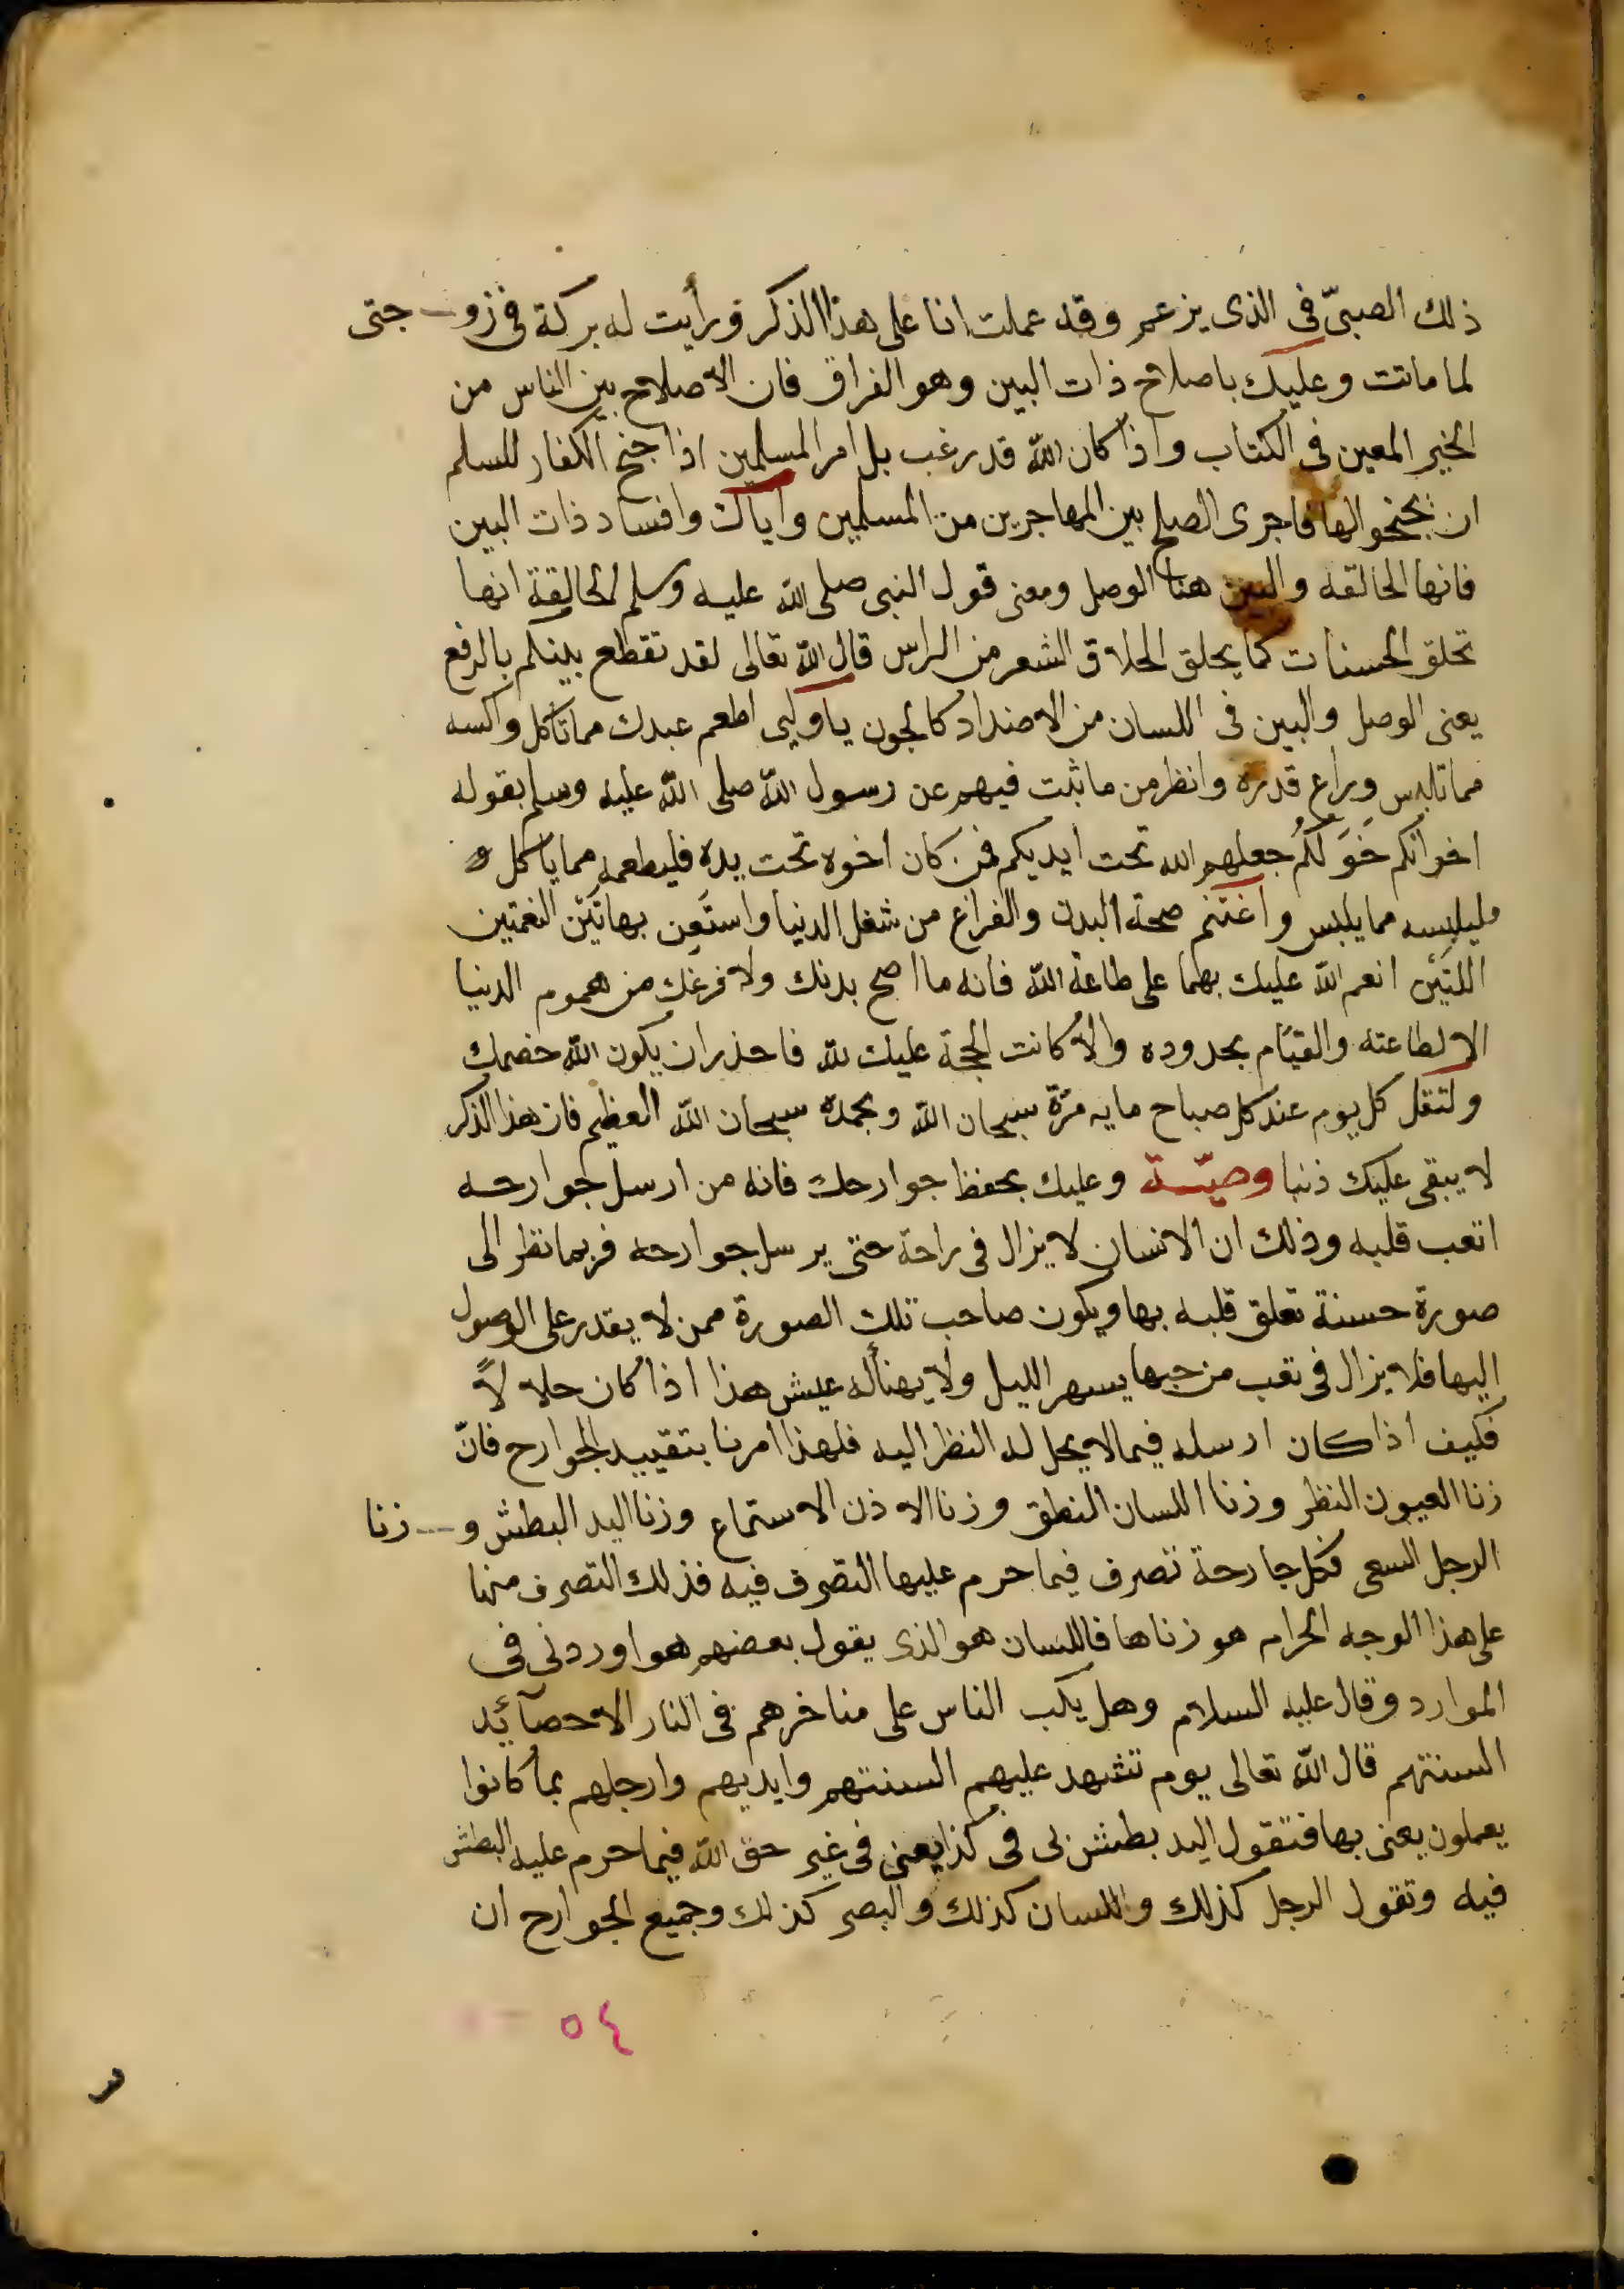 ذلك الصبىّ فى الذى يزعم وقد عملت انا على هذا الذكر ورأيت له بركة فى زو جتى
لما ماتت وعليك باصلاح ذات البين وهو الفراق فان الاصلاح بين الناس من
الخير المعين فى الكتاب واذا كان الله قد رغب بل امر المسلمين اذا جنح الكفار للسلم
ان يجنحوا لها فاجرى الصلح بين المهاجرين من المسلمين واياك وافساد ذات البين
فانها الحالقه والبين هنا الوصل ومعنى قول النبى صلى الله عليه وسلم الحالقة انها
تحلق الحسنات كما يحلق الحلاق الشعر من الراس قال الله تعالى لقد تقطع بينكم بالرفع
يعنى الوصل والبين فى اللسان من الاضداد كالجون ياوليى اطعم عبدك مما تاكل واكسه
مما تلبس وراع قدره وانظر من ما ثبت فيهم عن رسول الله صلى الله عليه وسلم بقوله
اخوانكم خَوَلكُم جعلهم الله تحت ايديكم فمن كان اخوه تحت يده فليطعمه مما ياكل و
مليلبسه مما يلبس واغتنم صحة البدن والفراغ من شغل الدنيا واستَعِن بهاتَيْن النعمتين
اللتَيْن انعم الله عليك بهما على طاعة الله فانه ما اصح بدنك ولا فرغك من هموم الدنيا
الا لطاعته والقيام بحدوده والا كانت الحجة عليك لله فاحذر ان يكون الله خصمك
ولتقل كل يوم عند كل صباح مايه مرّة سبحان الله وبحمده سبحان الله العظيم فان هذا الذكر
لا يبقى عليك ذنبا وصيّة وعليك بحفظ جوارحك فانه من ارسل جوارحه
اتعب قلبه وذلك ان الانسان لا يزال فى راحة حتى يرسل جوارحه فربما نظر الى
صورة حسنة تعلق قلبه بها ويكون صاحب تلك الصورة ممن لا يقدر على الوصول
اليها فلا يزال فى تعب من حبها يسهر الليل ولا يهنأ له عيش هذا اذا كان حلالاً
فكيف اذا كان ارسله فيما لا يحل له النظر اليه فلهذا امرنا بتقييد الجوارح فانّ
زنا العيون النظر وزنا اللسان النطق وزنا الاذن الاستماع وزنا اليد البطش و زنا
الرجل السعى فكل جارحة تصرف فيما حرم عليها التصرف فيه فذلك التصرف منها
على هذا الوجه الحرام هو زناها فاللسان هو الذى يقول بعضهم هو اوردنى فى
الموارد وقال عليه السلام وهل يكب الناس على مناخرهم فى النار الا حصآئد
السنتهم قال الله تعالى يوم تشهد عليهم السنتهم وايديهم وارجلهم بما كانوا
يعملون يعنى بها فتقول اليد بطش بى فى كذا يعنى فى غير حق الله فيما حرم عليه البطش
فيه وتقول الرجل كذلك واللسان كذلك والبصر كذلك وجميع الجوارح ان
٥٤